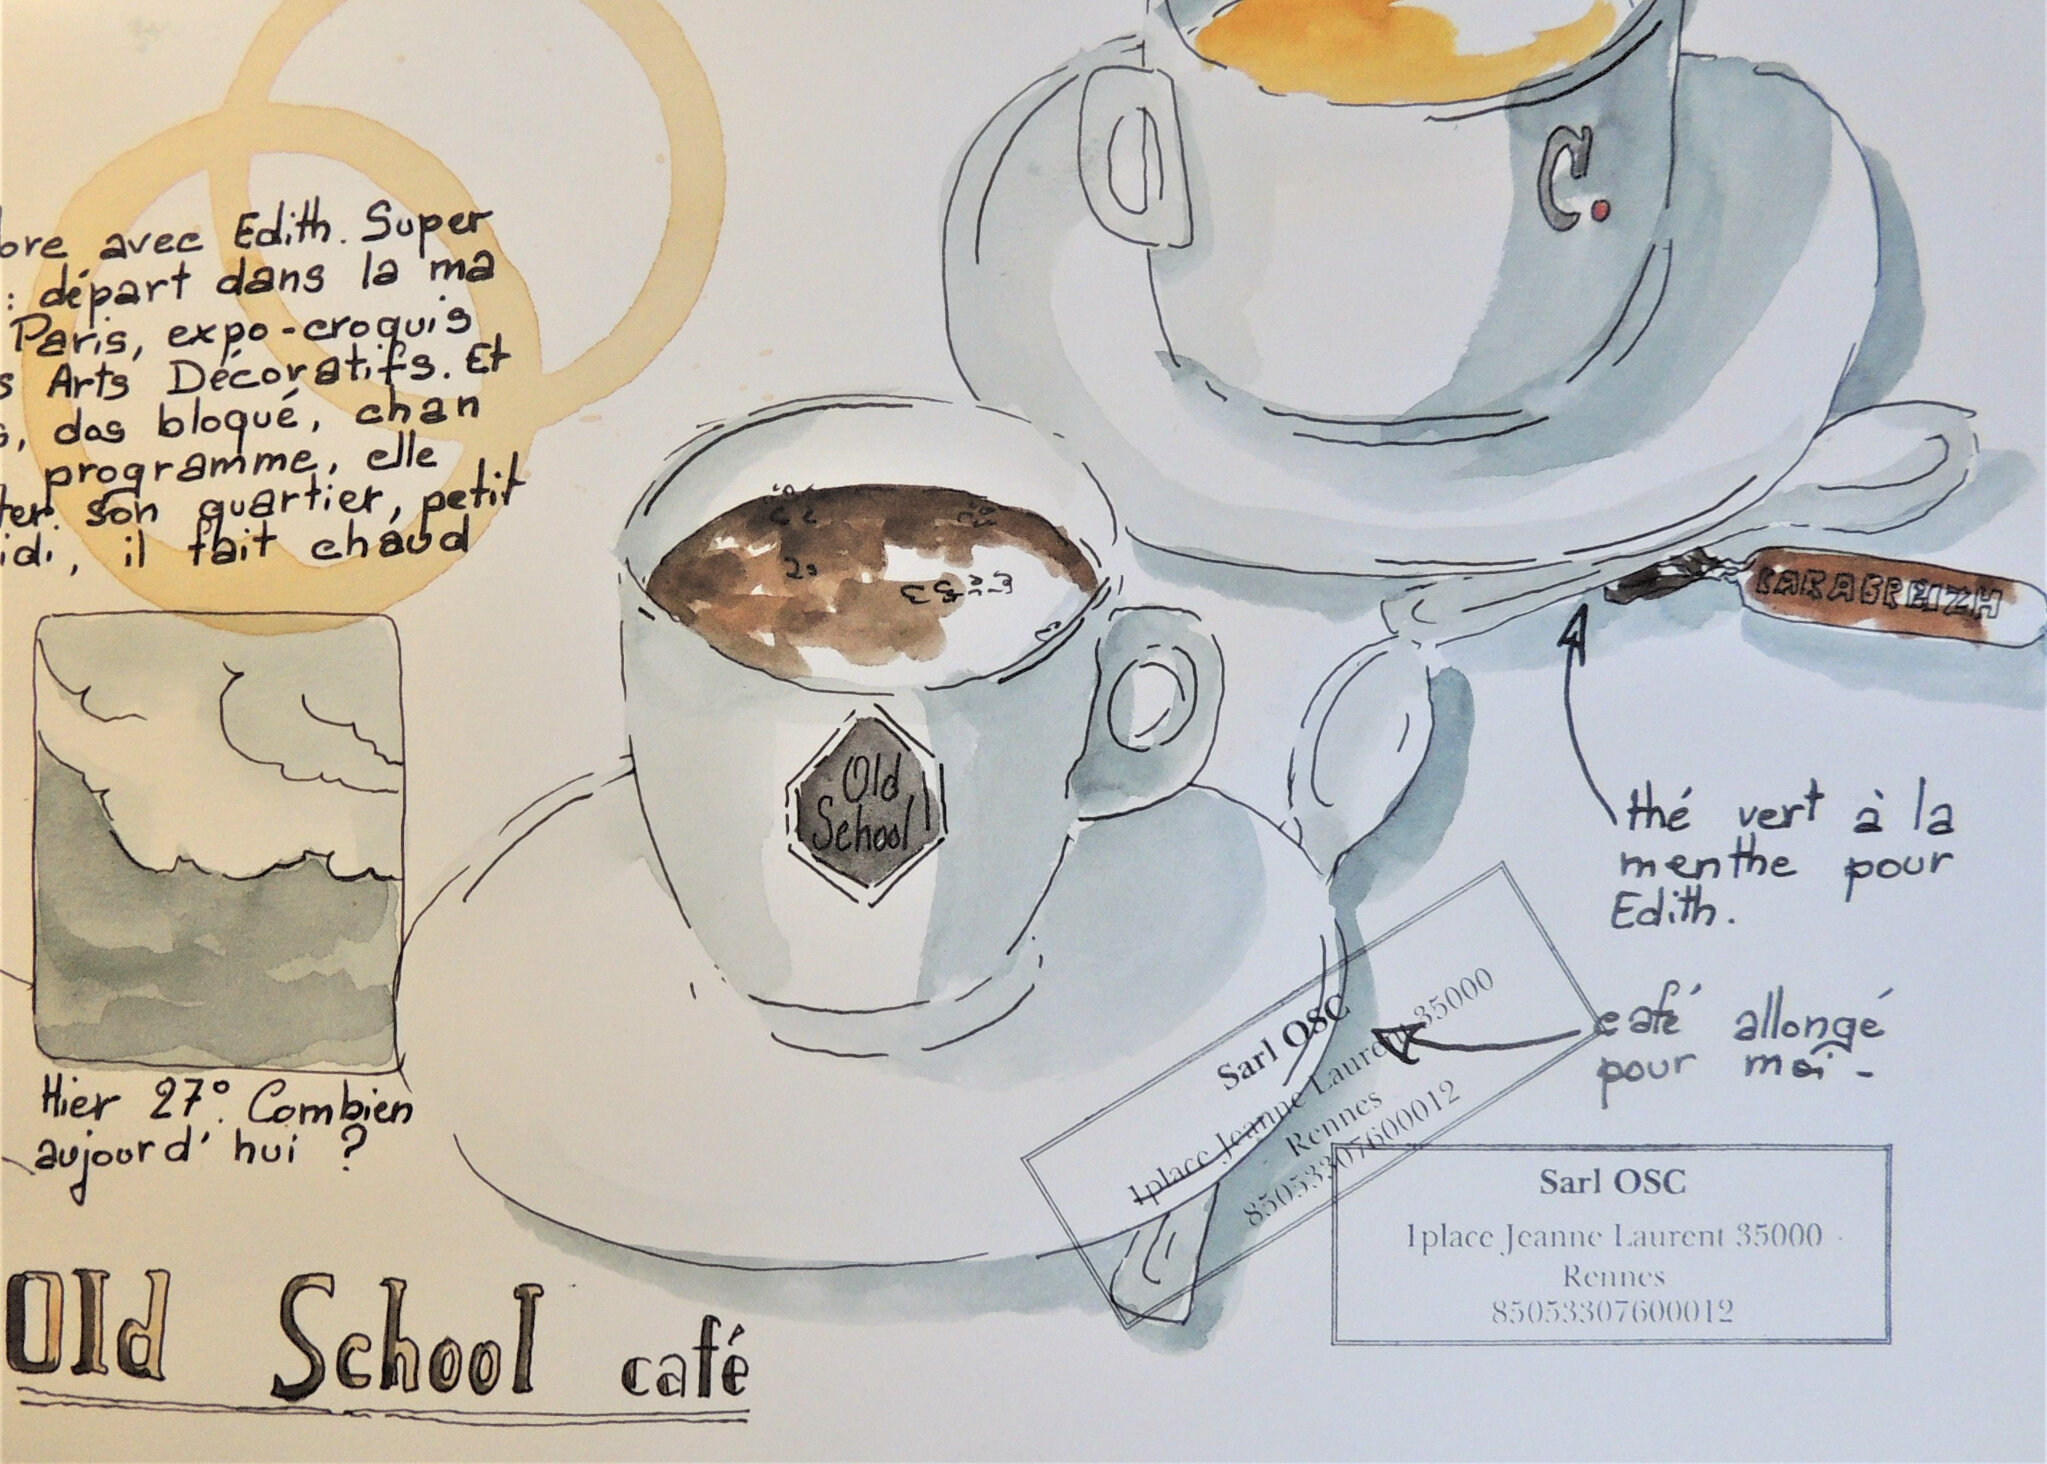 avec Edith. Super
: départ dans la ma
Paris, expo-croquis
s Arts Décoratifs. Et
s, dos bloqué, chan
programme, elle
ter son quartier, petit
idi, il fait chaud
C.
KARABREIZH
Old
School
thé vert à la
menthe pour
Edith.
café allongé
pour moi -
Hier 27°. Combien
aujourd'hui ?
Sarl OSC
1place Jeanne Laurent 35000
Rennes
85053307600012
Sarl OSC
1place Jeanne Laurent 35000
Rennes
85053307600012
Old School café